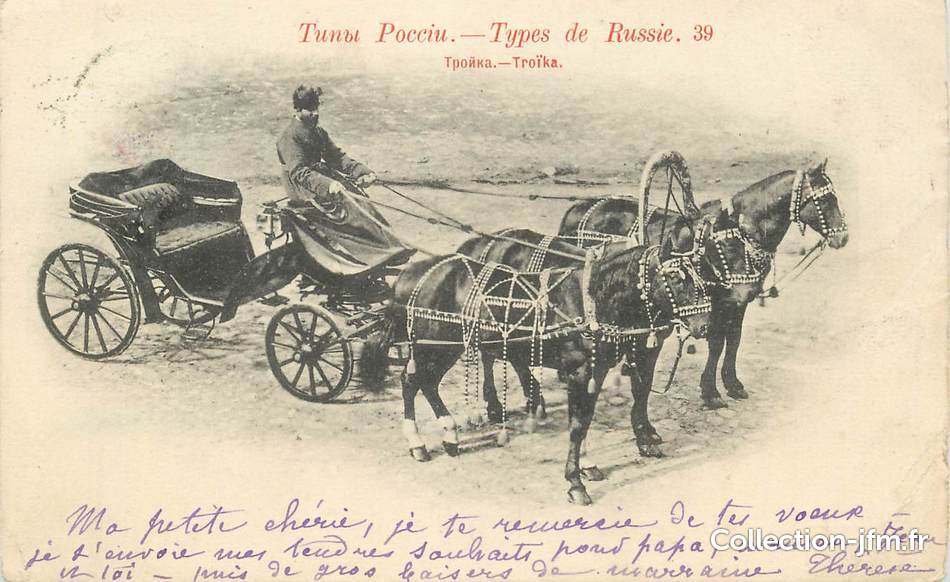 Типы Россіи.—Types de Russie. 39
Тройка.—Troïka.
Ma petite chérie, je te remercie de tes voeux –
je t'envoie mes tendres souhaits pour papa,
et toi – puis de gros baisers de marraine Thérèse
Collection-jfm.fr